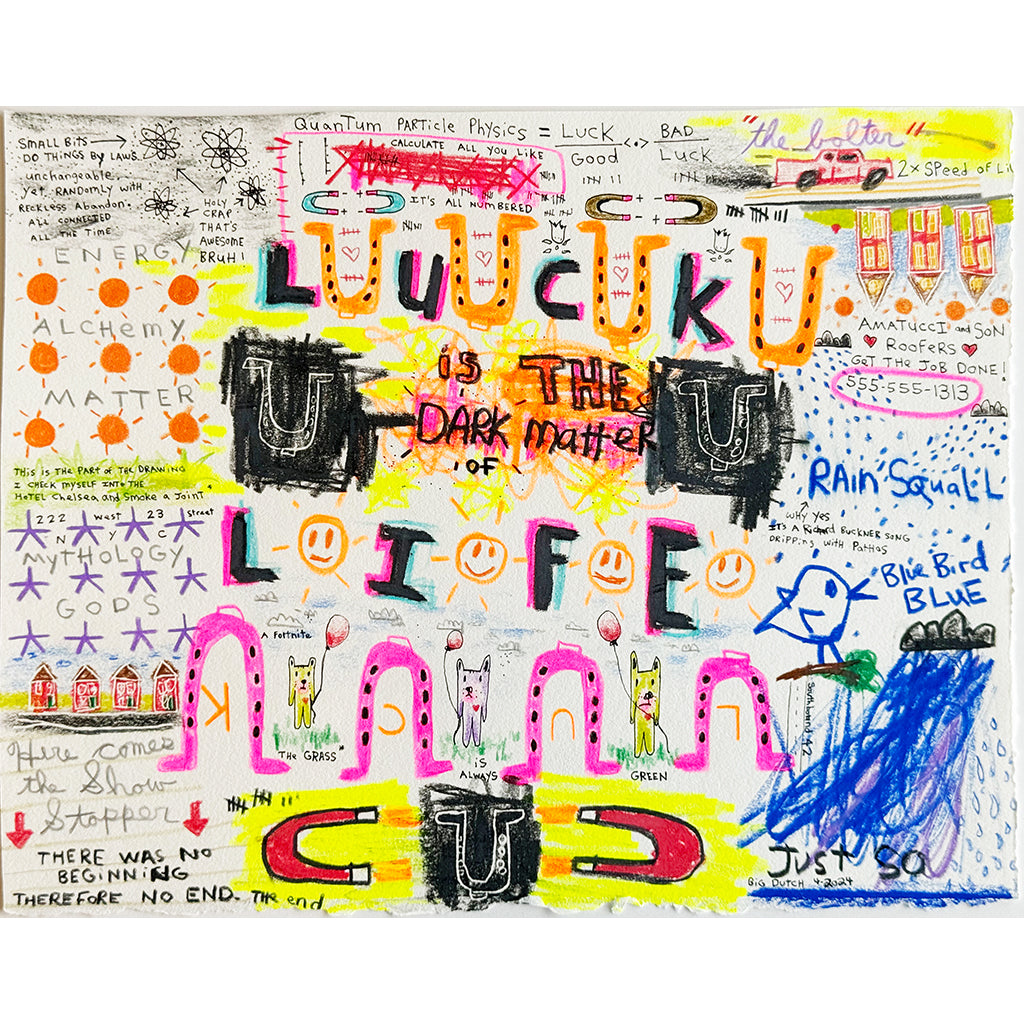 SMALL BITS
DO THINGS BY LAWS.
unchangeable
yet, RANDOMLY WITH
Reckless Abandon.
ALL CONNECTED
ALL THE TIME
HOLY
CRAP
THAT'S
AWESOME
BRUH!
QuanTum PARTicle Physics = Luck / Good <·> BAD / Luck
CALCULATE ALL YOU LIKE
IT'S ALL NUMBERED
"the bolter"
2x SPeed of Li
ENERGY
ALCHemy
MATTER
LUCK
is THE
DARK matteR
OF
LIFE
AMATUCCI and SoN
RooFeRS
GeT THe JoB DONe!
555-555-1313
THis is THe PART of THe DRAWING
I CHeCK MYSeLF INTo THe
HoTeL CHelsea and Smoke a JoinT
222 West 23 Street
N Y C
MYTHOLOGY
GODS
RAin SquaLL
WHY Yes
ITS A Richard BUCKNER SONG
DRiPPiNG WiTH PaTHos
Blue Bird
BLUE
A Fortnite
K C U L
THe GRASS
iS
ALWAYS
GREEN
Southbound 42
Here comes
the Show
Stopper
THERE WAS No
BEGINNING
THEREFORE NO END. THe end
Just so
BiG DUTCH 4-2024